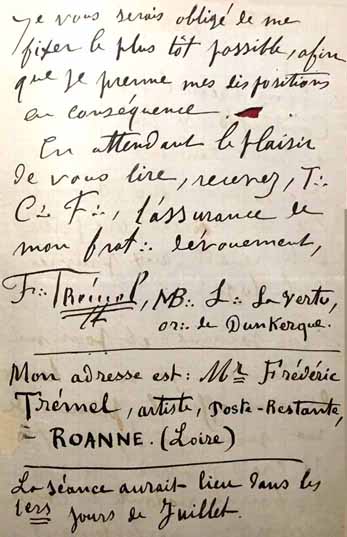 Je vous serais obligé de me
fixer le plus tôt possible, afin
que je prenne mes dispositions
en conséquence.
En attendant le plaisir
de vous lire, recevez, T∴
C∴ F∴, l'assurance de
mon frat∴ dévouement,
F∴ Trémel, MB∴ L∴ La Vertu,
or∴ de Dunkerque.
Mon adresse est : Mr Frédéric
Trémel, artiste, Poste-Restante,
= ROANNE. (Loire)
La séance aurait-lieu dans les
1ers jours de Juillet.